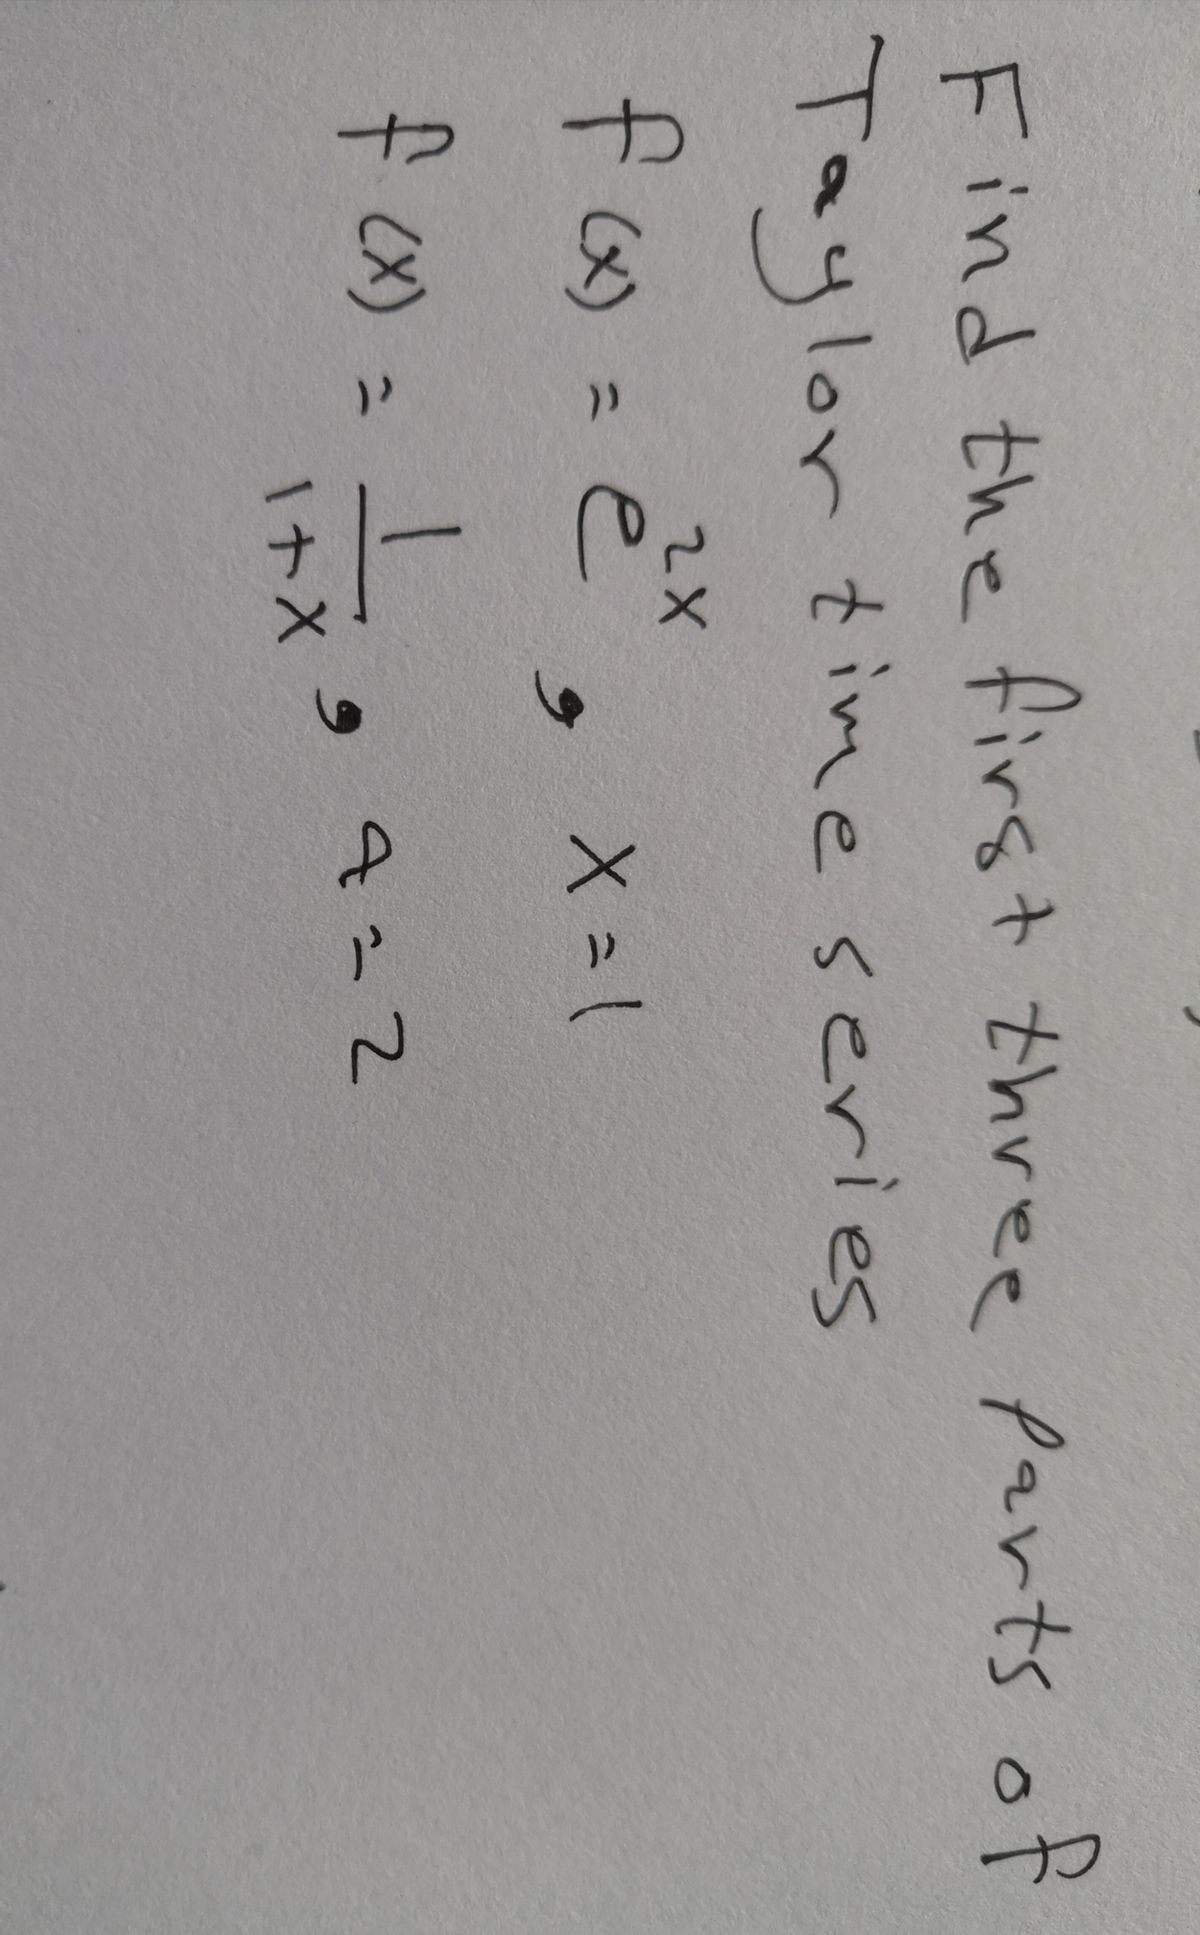 Find the first three parts of
Taylor time series
f(x) = e^{2x}, x=1
f(x) = \frac{1}{1+x}, a=2